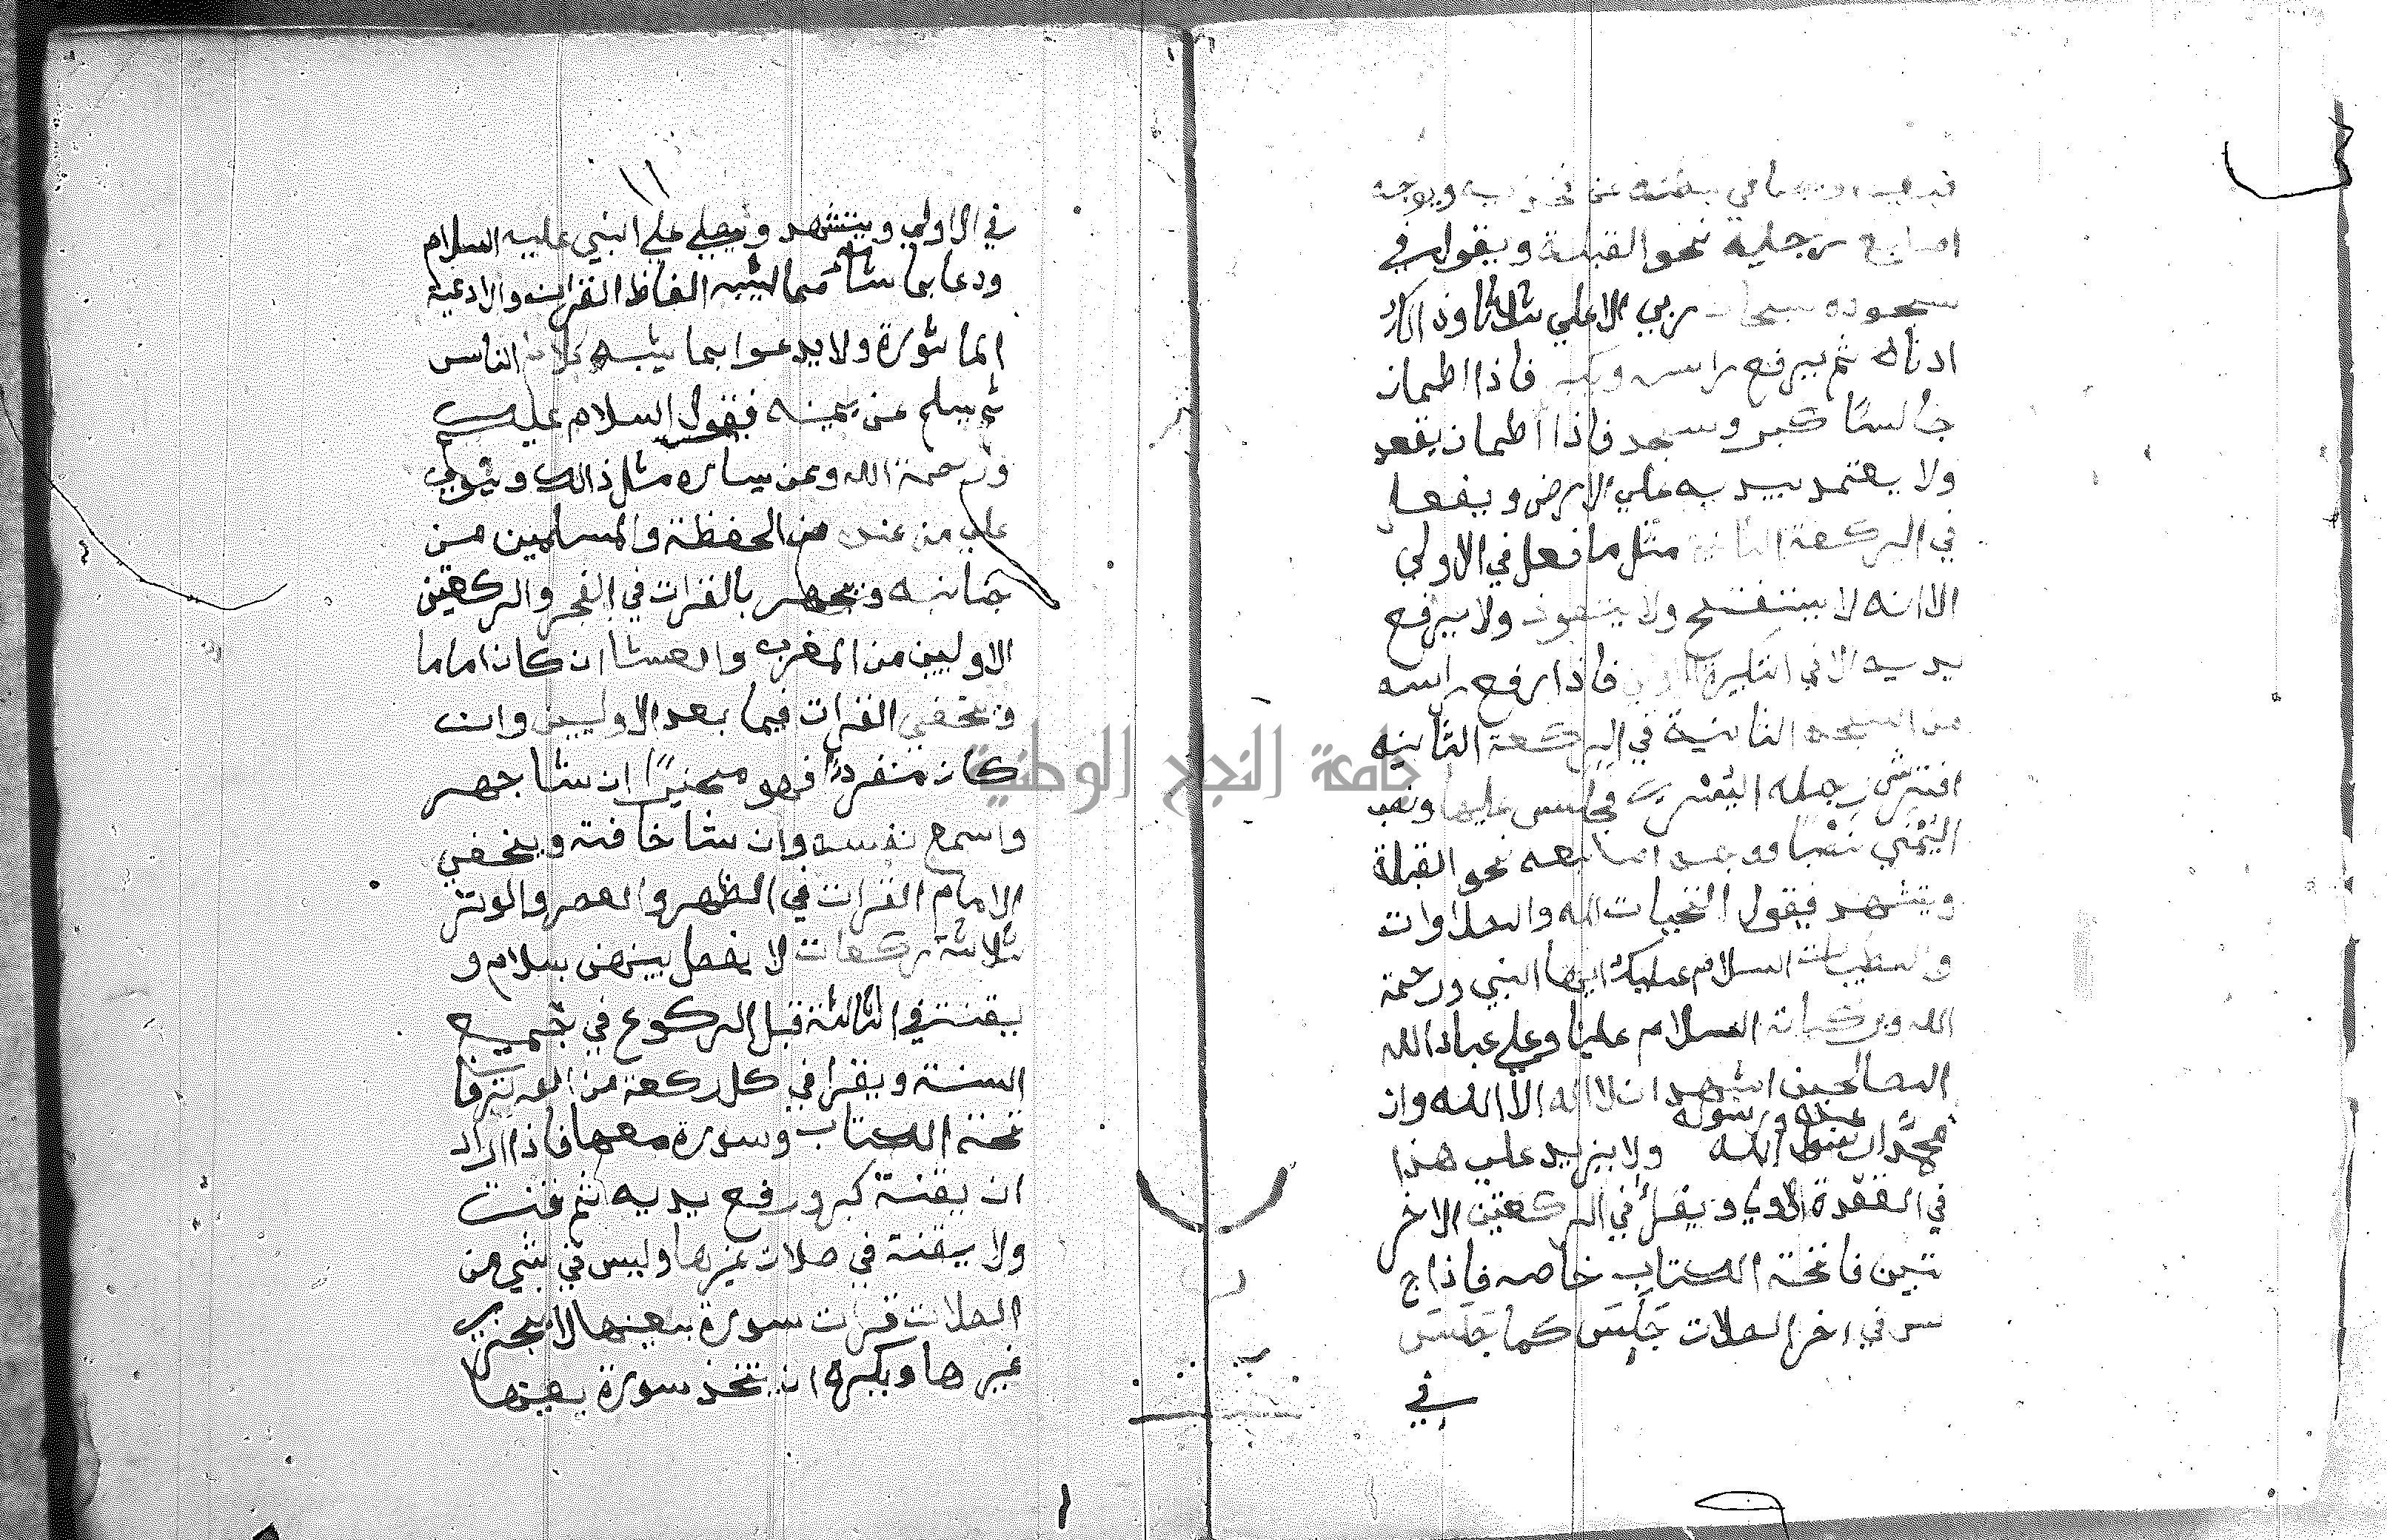 ويجافي بطنه عن فخذيه ويوجه
اصابع رجليه نحو القبلة ويقول في
سجوده سبحان ربي الاعلي ثلاثا وذالك
ادناه ثم يرفع راسه ويكبر فاذا اطمان
جالسا كبر وسجد فاذا اطمان يقعد
ولا يعتمد بيديه علي الارض ويفعل
في الركعة الثانية مثل ما فعل في الاولي
الا انه لا يستفتح ولا يتعوذ ولا يرفع
يديه الا في التكبيرة الاولي فاذا رفع راسه
من السجده الثانية في الركعة الثانيه
افترش رجله اليسري فجلس عليها ونصب
اليمني نصبا ووجه اصابعه نحو القبلة
ويتشهد فيقول التحيات لله والصلاوات
والطيبات السلام عليك ايها النبي ورحمة
الله وبركاته السلام علينا وعلي عباد الله
الصالحين اشهد ان لا اله الا الله وان
عبده ورسوله
محمدا رسول الله ولا يزيد علي هذا
في القعدة الاولي ويقرأ في الركعتين الاخر
تين فاتحة الكتاب خاصه فاذا ج
لس في اخر الصلات جلس كما جلس
في
١١
في الاولي ويتشهد ويصلي علي النبي عليه السلام
ودعا بما شأ مما يشبه الفاظ القران والادعية
الماثورة ولا يدعوا بما يشبه كلام الناس
ثم يسلم عن يمينه فيقول السلام عليكم
ورحمة الله وعن يساره مثل ذالك وينوي
علي من عنده من الحفظة والمسلمين من
جانبه ويجهر بالقرات في الفجر والركعتين
الاوليين من المغرب والعشا ان كان اماما
ويخفي القرات فيما بعد الاوليين وان
كان منفردا فهو مخيرا ان شا جهر
واسمع نفسه وان شا خافته ويخفي
الامام القرات في الظهر والعصر والوتر
ثلاثة ركعات لا يفصل بينهن بسلام و
يقنت في الثالثة قبل الركوع في جميع
السنة ويقرا في كل ركعة من الوتر فا
تحته الكتاب وسورة معها فاذا اراد
ان يقنة كبر ورفع يديه ثم قنت
ولا يقنة في صلات غيرها وليس في شي من
الصلات قرات سورة بعينها لا يجزي
غيرها ويكره ان يتخذ سورة بعينها
جامعة النجاح الوطنية